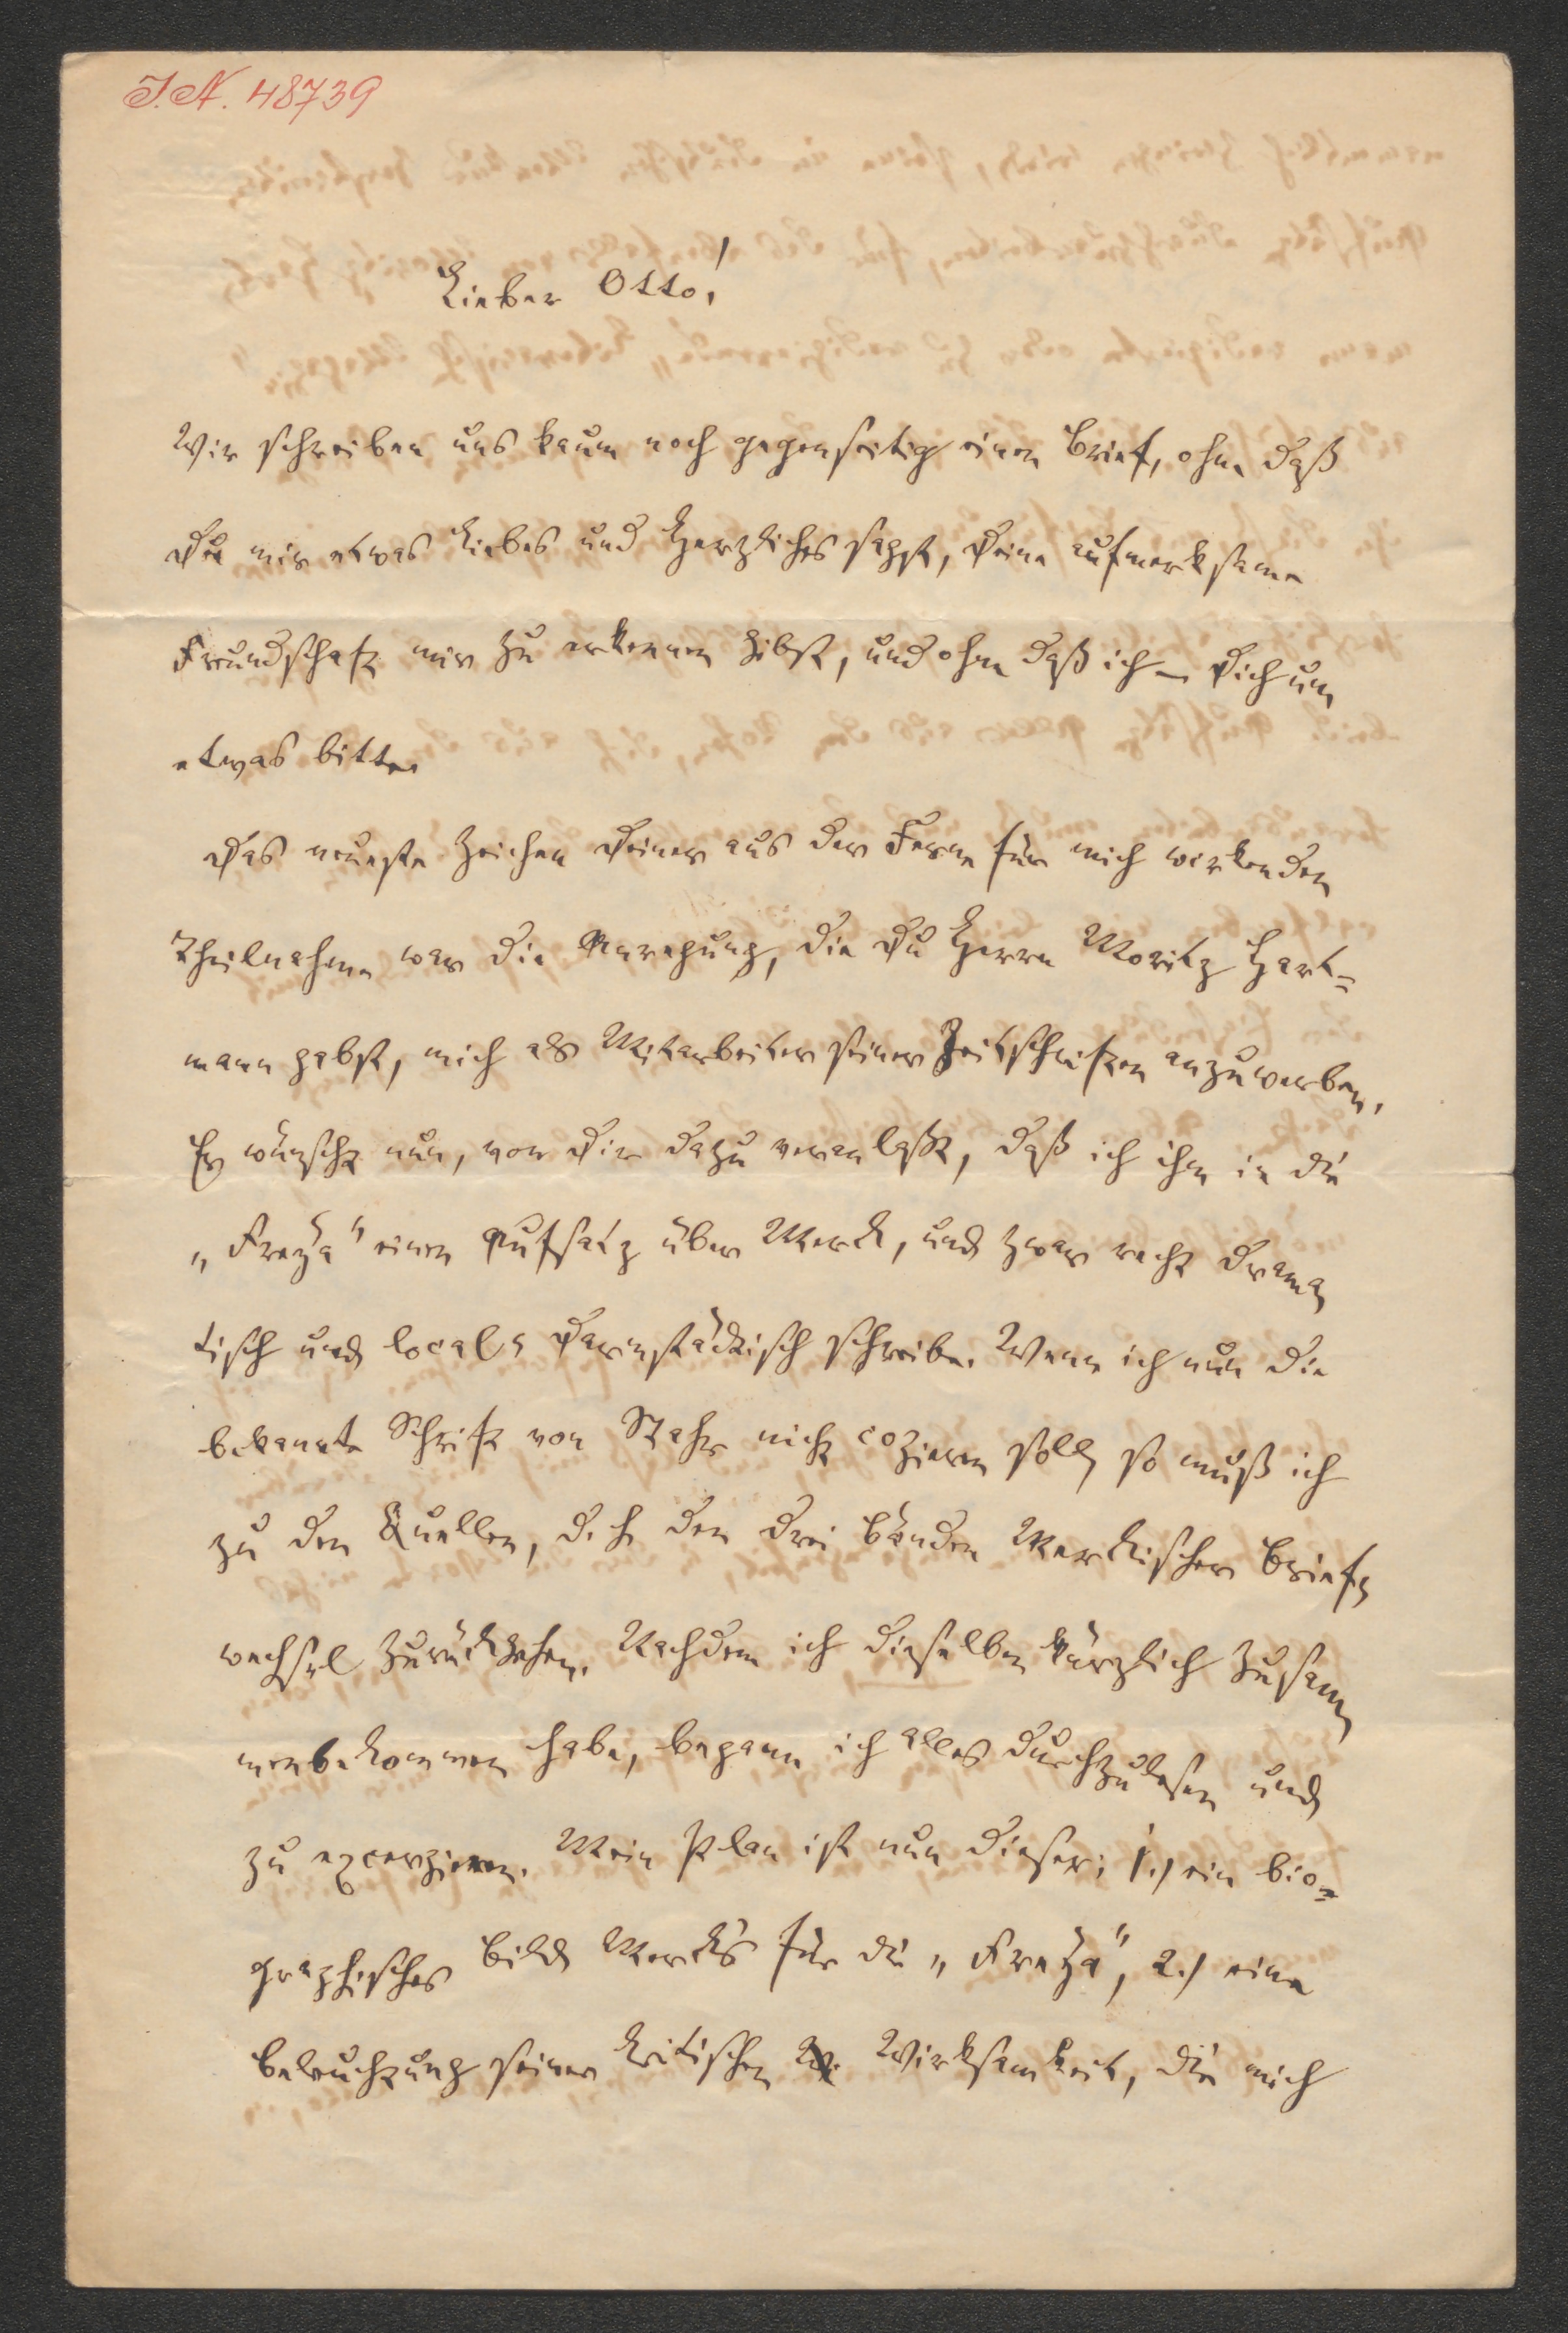 I.N. 48739
Lieber Otto!
Wir schreiben uns kaum noch gegenseitig einen Brief, ohne daß
Du mir etwas Liebes und Herzliches sagst, Deine aufmerksame
Freundschaft mir zu erkennen gibst, und ohne daß ich – Dich um
etwas bitte.
Das neueste Zeichen Deiner aus der Ferne für mich wirkenden
Theilnahme war die Anregung, die Du Herrn Moritz Hart-
mann gabst, mich als Mitarbeiter seiner Zeitschriften anzuwerben.
Er wünscht nun, von Dir dazu veranlaßt, daß ich ihm in die
„Freya" einen Aufsatz über Merck, und zwar recht drama
tisch und local-Darmstädtisch schreibe. Wenn ich nun die
bekannte Schrift von Stahr nicht copieren soll, so muß ich
zu den Quellen, d. h. den drei Bänden Merckischer Brief-
wechsel zurückgehen. Nachdem ich dieselben kürzlich zusam
menbekommen habe, begann ich alles durchzulesen und
zu excerpieren. Mein Plan ist nun dieser: 1.) ein bio-
graphisches Bild Merck's für die „Freya", 2.) eine
Beleuchtung seiner kritischen Wirksamkeit, die mich